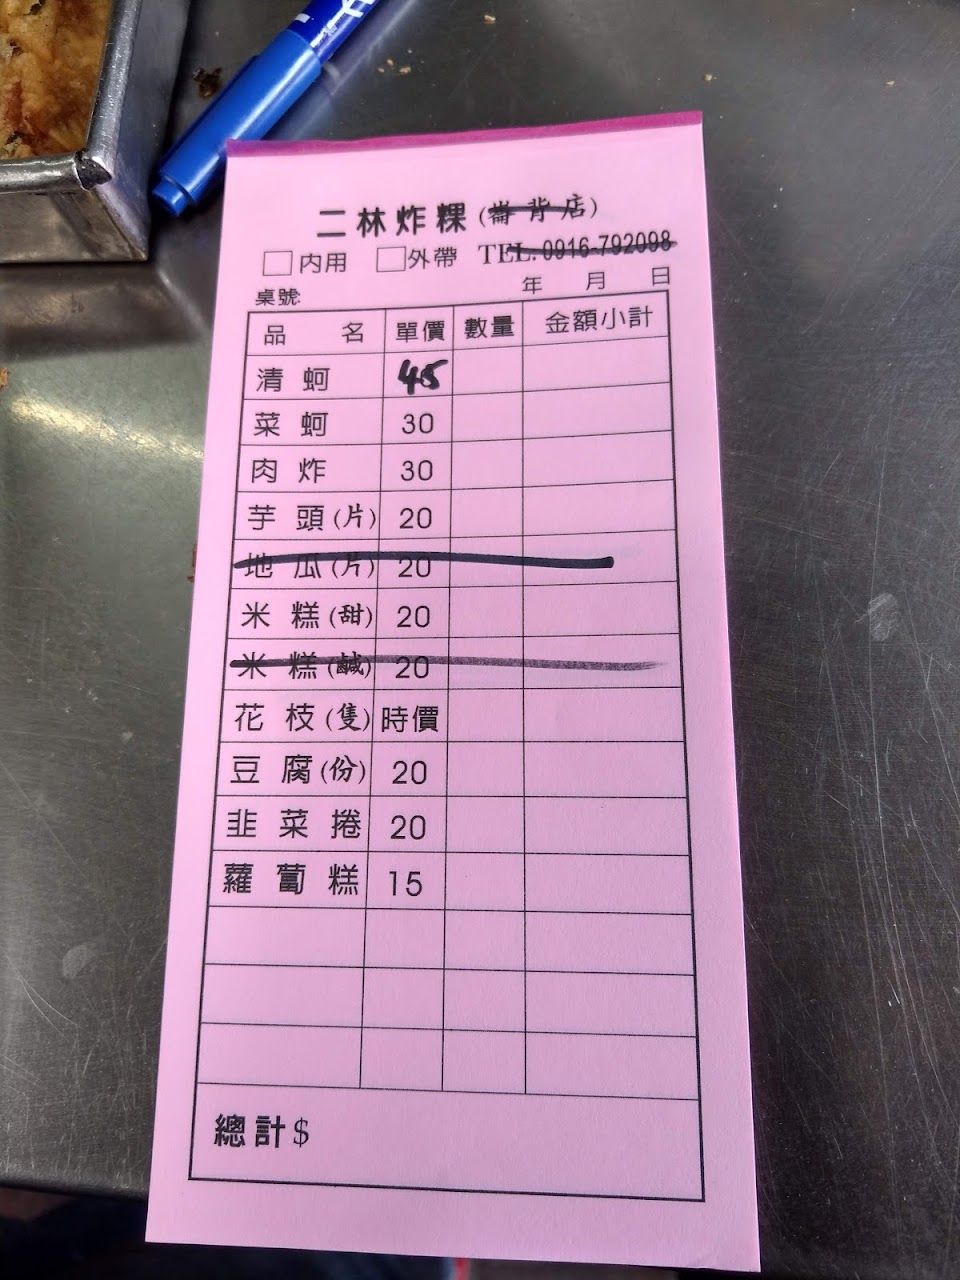 二林炸粿(崙背店)
內用 外帶 TEL: 0916-792098
桌號: 年 月 日
品名 單價 數量 金額小計
清蚵 45
菜蚵 30
肉炸 30
芋頭(片) 20
地瓜(片) 20
米糕(甜) 20
米糕(鹹) 20
花枝(隻) 時價
豆腐(份) 20
韭菜捲 20
蘿蔔糕 15
總計$